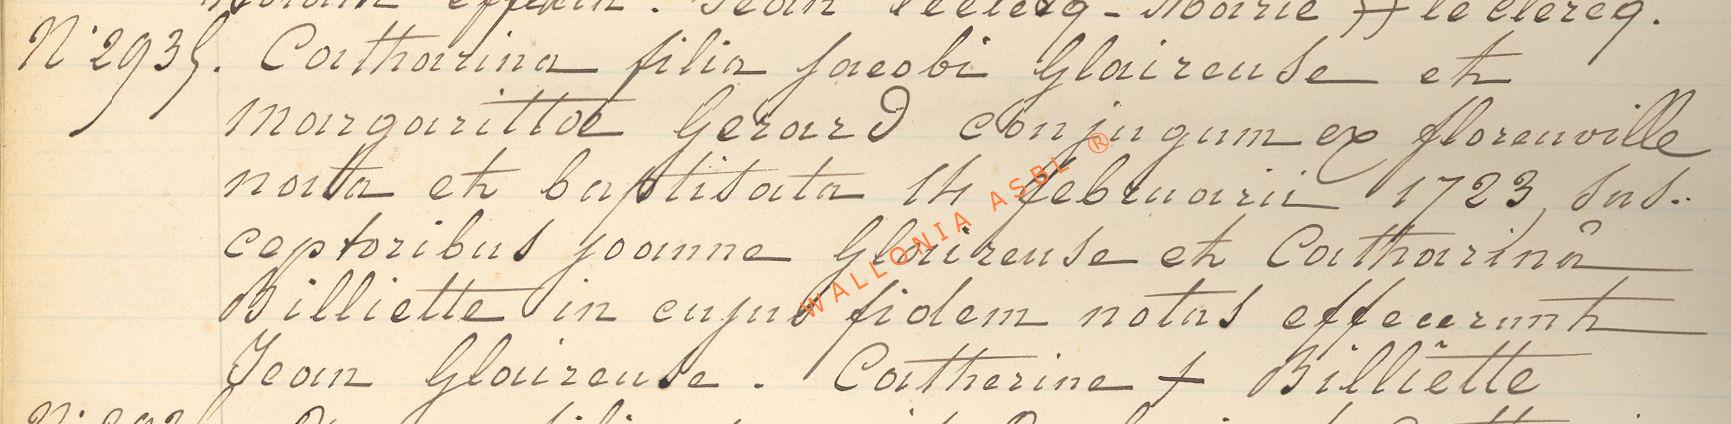 effecerunt. Jean leclercq - Marie ++ leclercq.
N° 2935. Catharina filia Jacobi Glaireuse et
margarittae Gerard conjugum ex florenville
nata et baptisata 14 februarii 1723, sus..
ceptoribus joanne Glaireuse et Catharinâ
Billiette in cujus fidem notas effecerunt
Jean Glaireuse. Catherine + Billiette
WALLONIA ASBL ®